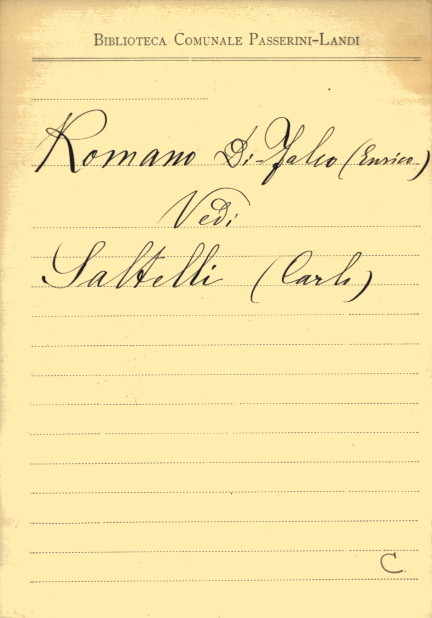 BIBLIOTECA COMUNALE PASSERINI-LANDI
Romano Di-Falco (Enrico)
Vedi
Saltelli (Carlo)
C